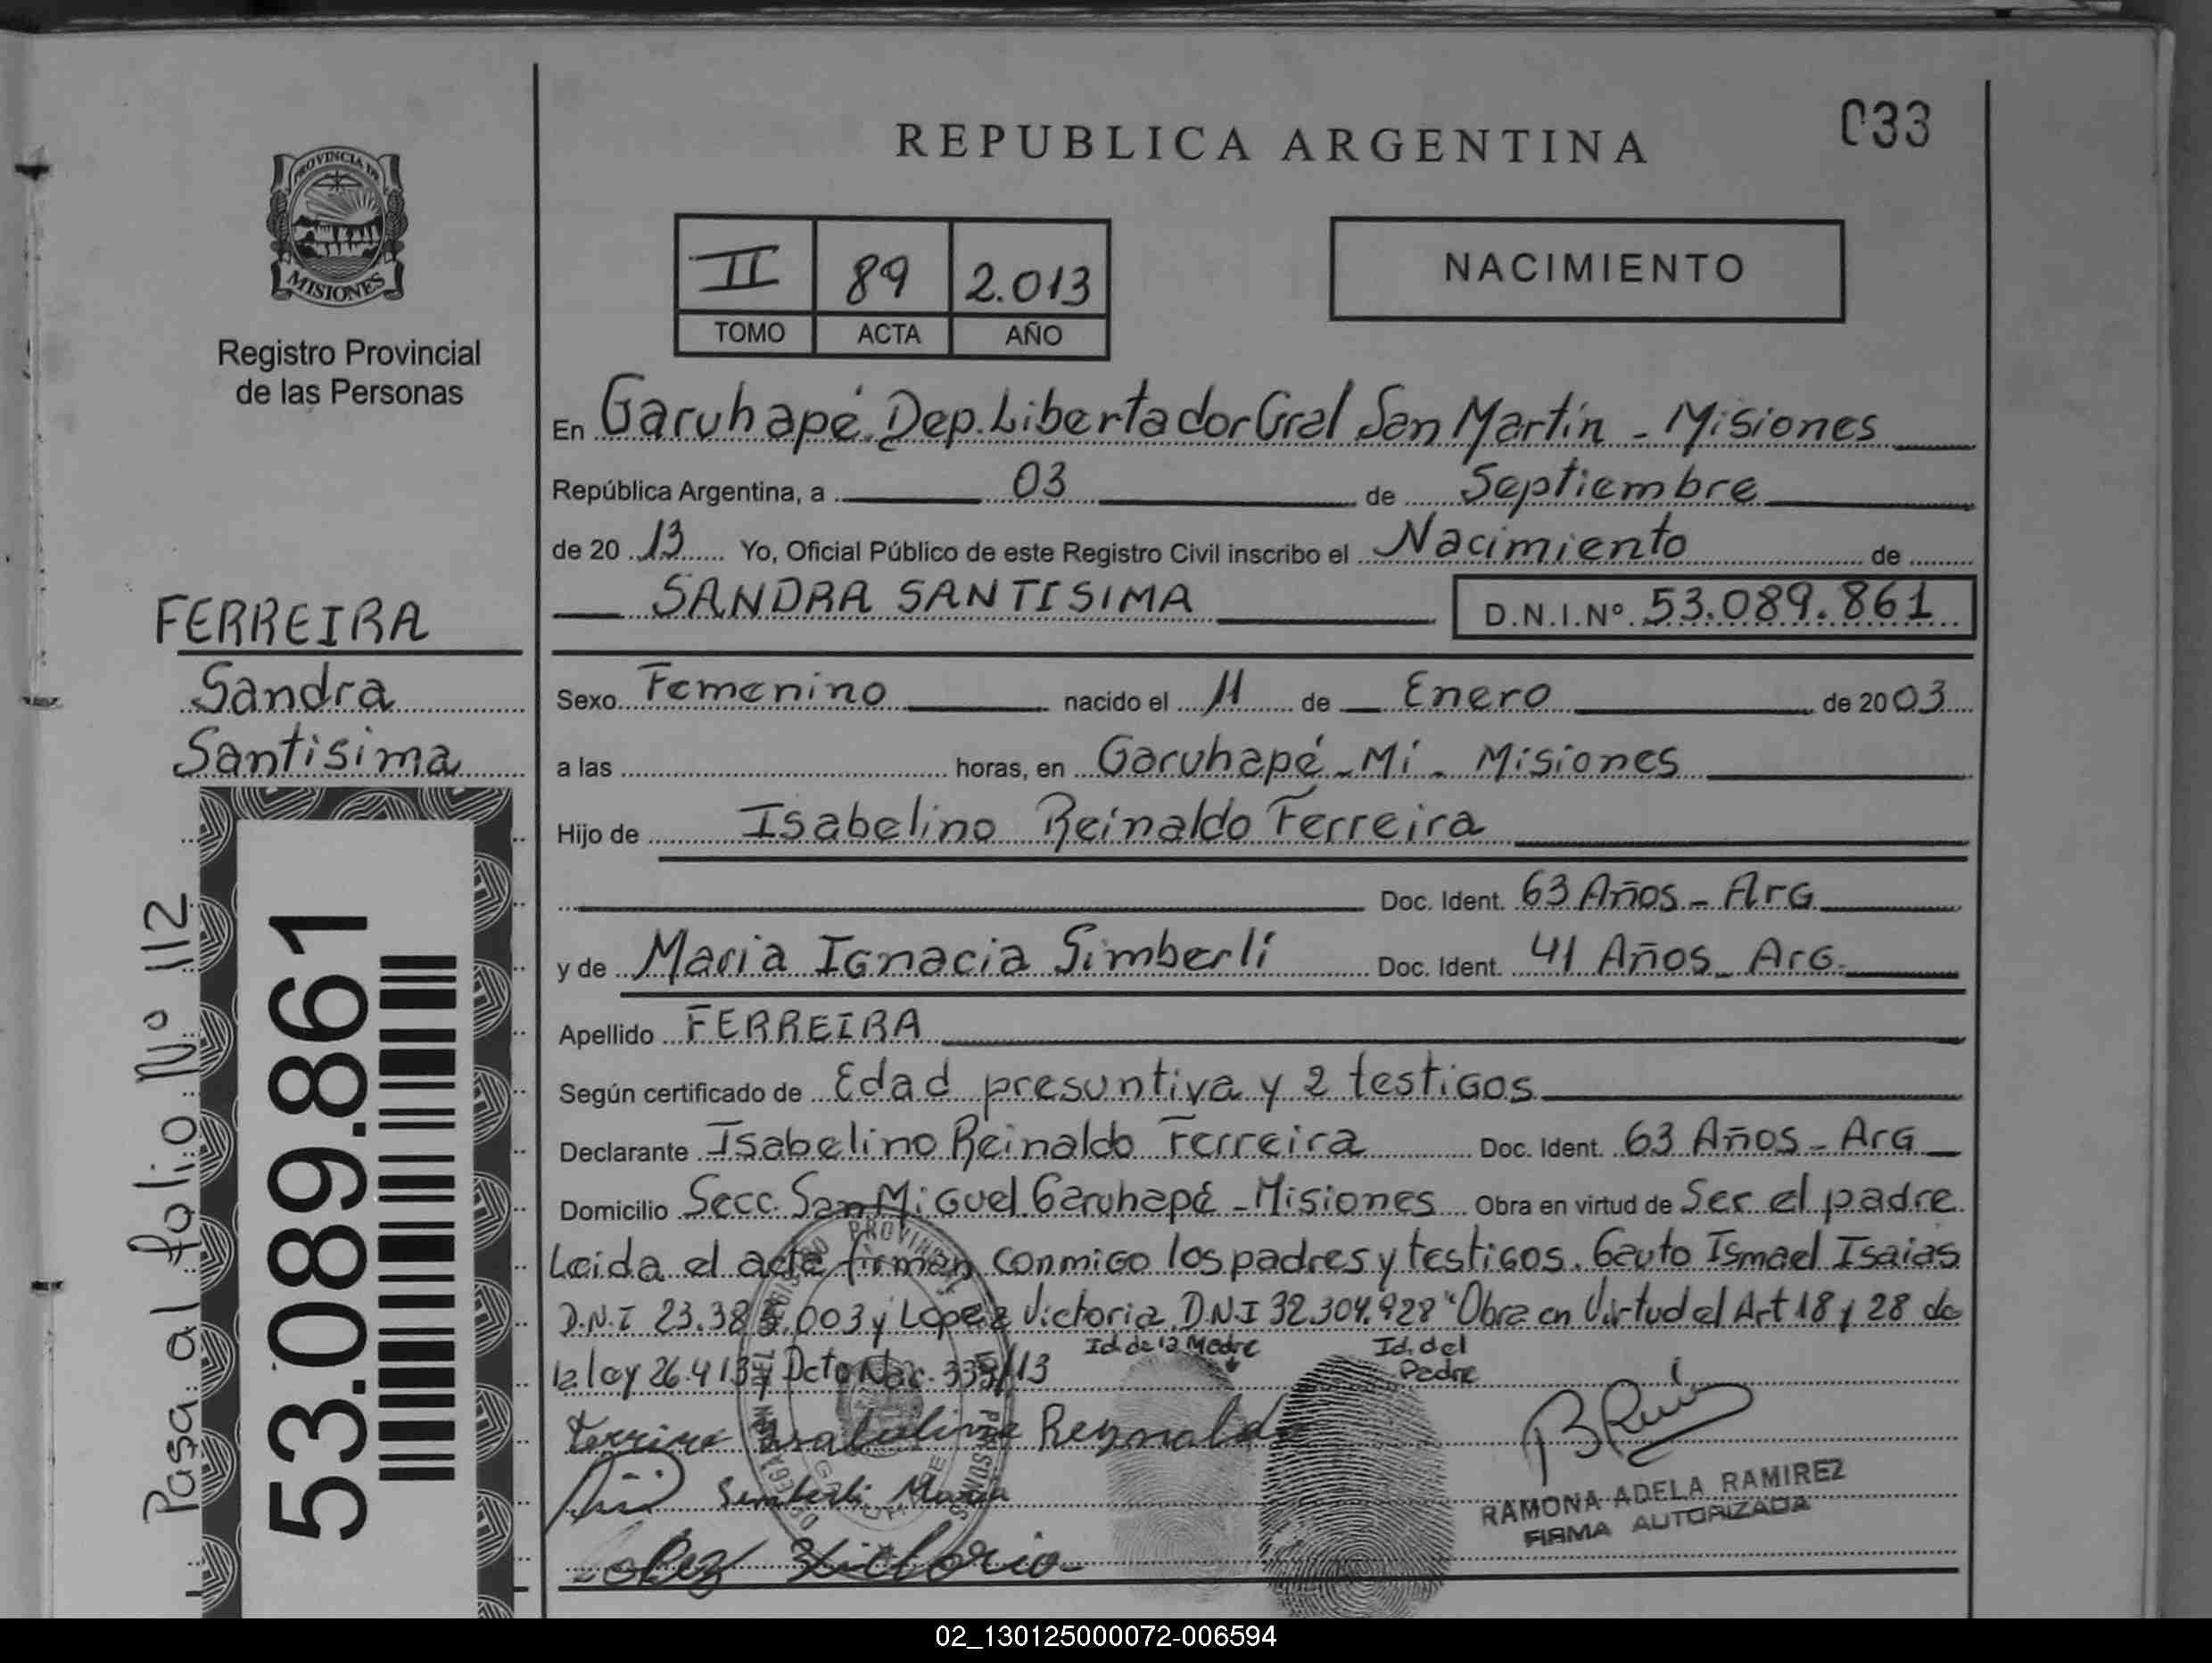 033
REPUBLICA ARGENTINA
PROVINCIA DE
MISIONES
Registro Provincial
de las Personas
II 89 2.013
TOMO ACTA AÑO
NACIMIENTO
En Garuhapé Dep. Libertador Gral San Martín - Misiones
República Argentina, a 03 de Septiembre
de 20 13 Yo, Oficial Público de este Registro Civil inscribo el Nacimiento de
SANDRA SANTISIMA D.N.I.Nº 53.089.861
FERREIRA
Sandra
Santisima
Pasa al folio Nº 112
53.089.861
Sexo Femenino nacido el 11 de Enero de 20 03
a las horas, en Garuhapé - Mi - Misiones
Hijo de Isabelino Reinaldo Ferreira
Doc. Ident. 63 Años - Arg
y de Maria Ignacia Simberli Doc. Ident. 41 Años - Arg.
Apellido FERREIRA
Según certificado de Edad presuntiva y 2 testigos
Declarante Isabelino Reinaldo Ferreira Doc. Ident. 63 Años - Arg
Domicilio Secc. San Miguel Garuhapé - Misiones Obra en virtud de Ser el padre
Leida el acta firman conmigo los padres y testigos. Gauto Ismael Isaias
D.N.I 23.38 .003 y Lopez Victoria D.N.I 32.304.928 "Obra en Virtud el Art 18 y 28 de
la ley 26.413 y Dcto Nac. 339/13
Id. de la Madre
Id. del
Padre
Ferreira Isabelino Reynaldo
Simberli Maria
Lopez Victoria
RAMONA ADELA RAMIREZ
FIRMA AUTORIZADA
02_130125000072-006594